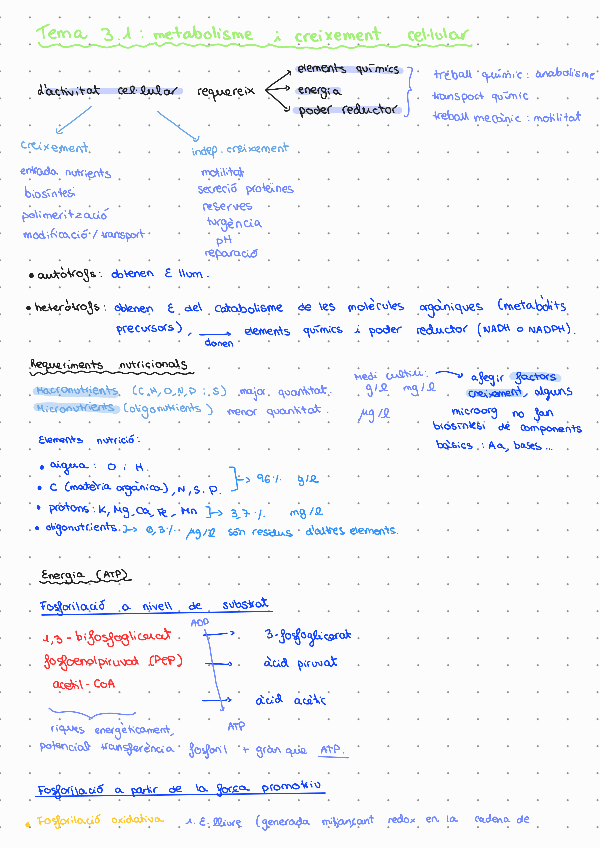 Tema 3.1: metabolisme i creixement cel·lular
d'activitat cel·lular requereix
elements químics
energia
poder reductor
treball químic: anabolisme
transport químic
treball mecànic: motilitat
creixement
entrada nutrients
biosíntesi
polimerització
modificació / transport
indep. creixement
motilitat
secreció proteïnes
reserves
turgència
pH
reparació
• autòtrofs: obtenen E llum.
• heteròtrofs: obtenen E del catabolisme de les molècules orgàniques (metabòlits
precursors), donen → elements químics i poder reductor (NADH o NADPH).
Requeriments nutricionals
Macronutrients (C, H, O, N, P i S) major quantitat.
Micronutrients (oligonutrients) menor quantitat.
Medi cultiu:
g/l mg/l
µg/l
→ afegir factors
creixement, alguns
microorg no fan
biosíntesi de components
bàsics: Aa, bases...
Elements nutrició:
• aigua: O i H.
• C (matèria orgànica), N, S, P. → 96% g/l
• protons: K, Mg, Ca, Fe, Mn → 3,7% mg/l
• oligonutrients → 0,3% µg/l són residus d'altres elements.
Energia (ATP)
Fosforilació a nivell de substrat
ADP
1,3-bifosfoglicerat → 3-fosfoglicerat
fosfoenolpiruvat (PEP) → àcid piruvat
acetil-CoA → àcid acètic
ATP
riques energèticament,
potencial transferència fosforil + gran que ATP.
Fosforilació a partir de la força promotriu
• Fosforilació oxidativa 1. E. lliure (generada mitjançant redox en la cadena de